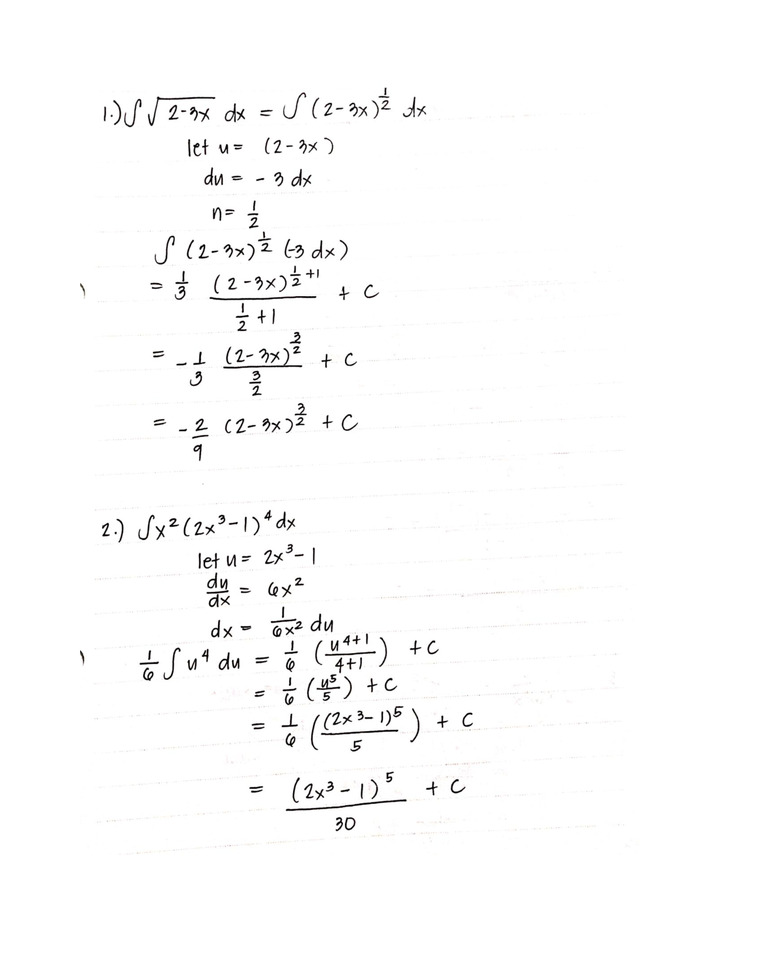 1.) ∫ √(2-3x) dx = ∫ (2-3x)^(1/2) dx
let u = (2-3x)
du = -3 dx
n = 1/2
∫ (2-3x)^(1/2) (-3 dx)
= 1/3 (2-3x)^(1/2 +1) / (1/2 +1) + C
= -1/3 (2-3x)^(3/2) / (3/2) + C
= -2/9 (2-3x)^(3/2) + C
2.) ∫x²(2x³-1)⁴ dx
let u = 2x³-1
du/dx = 6x²
dx = 1/(6x²) du
1/6 ∫ u⁴ du = 1/6 (u^(4+1) / (4+1)) + C
= 1/6 (u⁵/5) + C
= 1/6 ((2x³-1)⁵ / 5) + C
= (2x³-1)⁵ / 30 + C